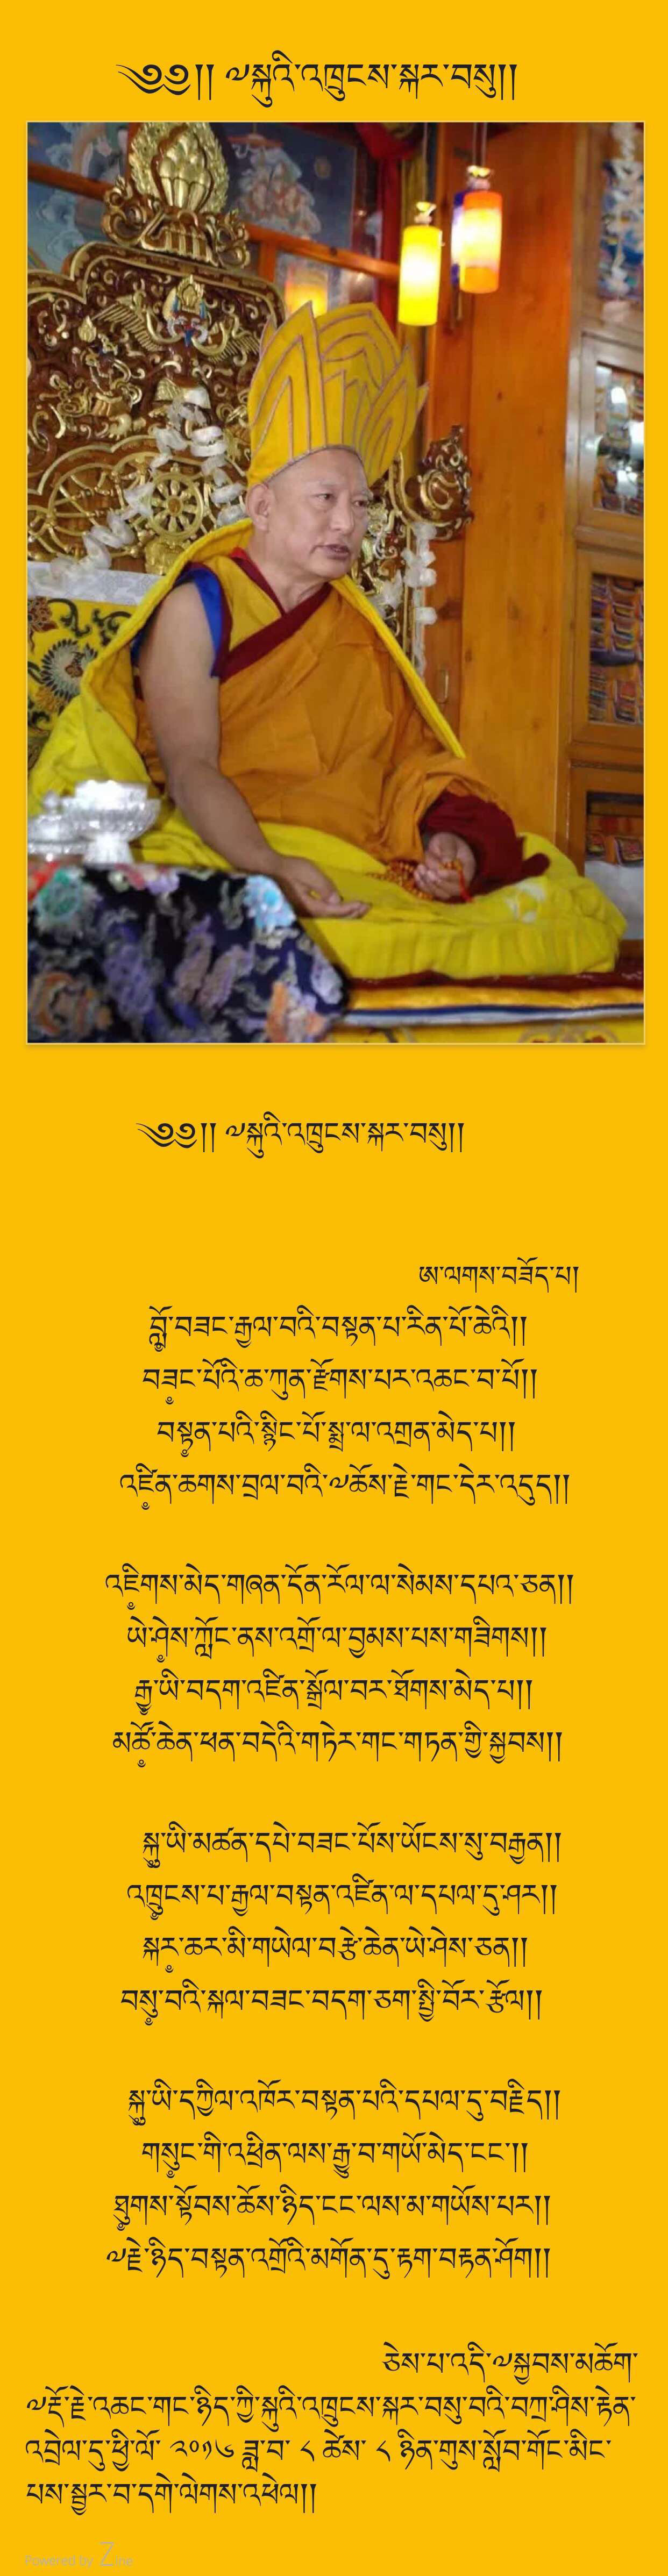 ༄༅།། ༧སྐུའི་འཁྲུངས་སྐར་བསུ།།
༄༅།། ༧སྐུའི་འཁྲུངས་སྐར་བསུ།།
ཨ་ལགས་བཟོད་པ།
བློ༷་བཟང་རྒྱལ་བའི་བསྟན་པ་རིན་པོ་ཆེའི།།
བཟ༷ང་པོའི་ཆ་ཀུན་རྫོགས་པར་འཆང་བ་པོ།།
བསྟ༷ན་པའི་སྙིང་པོ་སྨྲ་ལ་འགྲན་མེད་པ།།
འཛི༷ན་ཆགས་བྲལ་བའི་༧ཆོས་རྗེ་གང་དེར་འདུད།།
འཇི༷གས་མེད་གཞན་དོན་རོལ་ལ་སེམས་དཔའ་ཅན།།
ཡེ་ཤེ༷ས་ཀློང་ནས་འགྲོ་ལ་བྱམས་པས་གཟིགས།།
རྒྱ༷་ཡི་བདག་འཛིན་སྒྲོལ་བར་ཐོགས་མེད་པ།།
མཚོ༷་ཆེན་ཕན་བདེའི་གཏེར་གང་གཏན་གྱི་སྐྱབས།།
སྐུ༷་ཡི་མཚན་དཔེ་བཟང་པོས་ཡོངས་སུ་བརྒྱན།།
འཁྲུ༷ངས་པ་རྒྱལ་བསྟན་འཛིན་ལ་དཔལ་དུ་ཤར།།
སྐར༷་ཆར་མི་གཡེལ་བརྩེ་ཆེན་ཡེ་ཤེས་ཅན།།
བསུ༷་བའི་སྐལ་བཟང་བདག་ཅག་སྤྱི་བོར་རྩོལ།།
སྐུ༷་ཡི་དཀྱིལ་འཁོར་བསྟན་པའི་དཔལ་དུ་བརྗིད།།
གསུ༷ང་གི་འཕྲིན་ལས་རྒྱུ་བ་གཡོ་མེད་ངང་།།
ཐུ༷གས་སྟོབས་ཆོས་ཉིད་ངང་ལས་མ་གཡོས་པར།།
༧རྗེ་ཉིད་བསྟན་འགྲོའི་མགོན་དུ་རྟག་བརྟན་ཤོག།
ཅེས་པ་འདི་༧སྐྱབས་མཆོག་
༧རྡོ་རྗེ་འཆང་གང་ཉིད་ཀྱི་སྐུའི་འཁྲུངས་སྐར་བསུ་བའི་བཀྲ་ཤིས་རྟེན་
འབྲེལ་དུ་ཕྱི་ལོ་ ༢༠༡༦ ཟླ་བ་ ༨ ཚེས་ ༨ ཉིན་གུས་སློབ་གོང་མིང་
པས་སྦྱར་བ་དགེ་ལེགས་འཕེལ།།
Powered by Zine